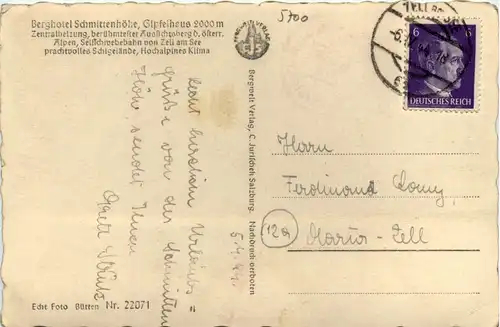 Berghotel Schmittenhöhe, Gipfelhaus 2000 m
Zentralheizung, berühmtester Aussichtsberg d. österr.
Alpen, Seilschwebebahn von Zell am See
prachtvolles Schigelände, Hochalpines Klima
5700
ZELL am
6 6
DEUTSCHES REICH
Recht herzliche Urlaubs-
Grüße von der Schmitten
Höhe sendet Ihnen
5.4.44.
Bergwelt Verlag, C. Jurischek Salzburg. Nachdruck verboten
Herrn
Ferdinand
12a
Maria-Zell
Echt Foto Bütten Nr. 22071